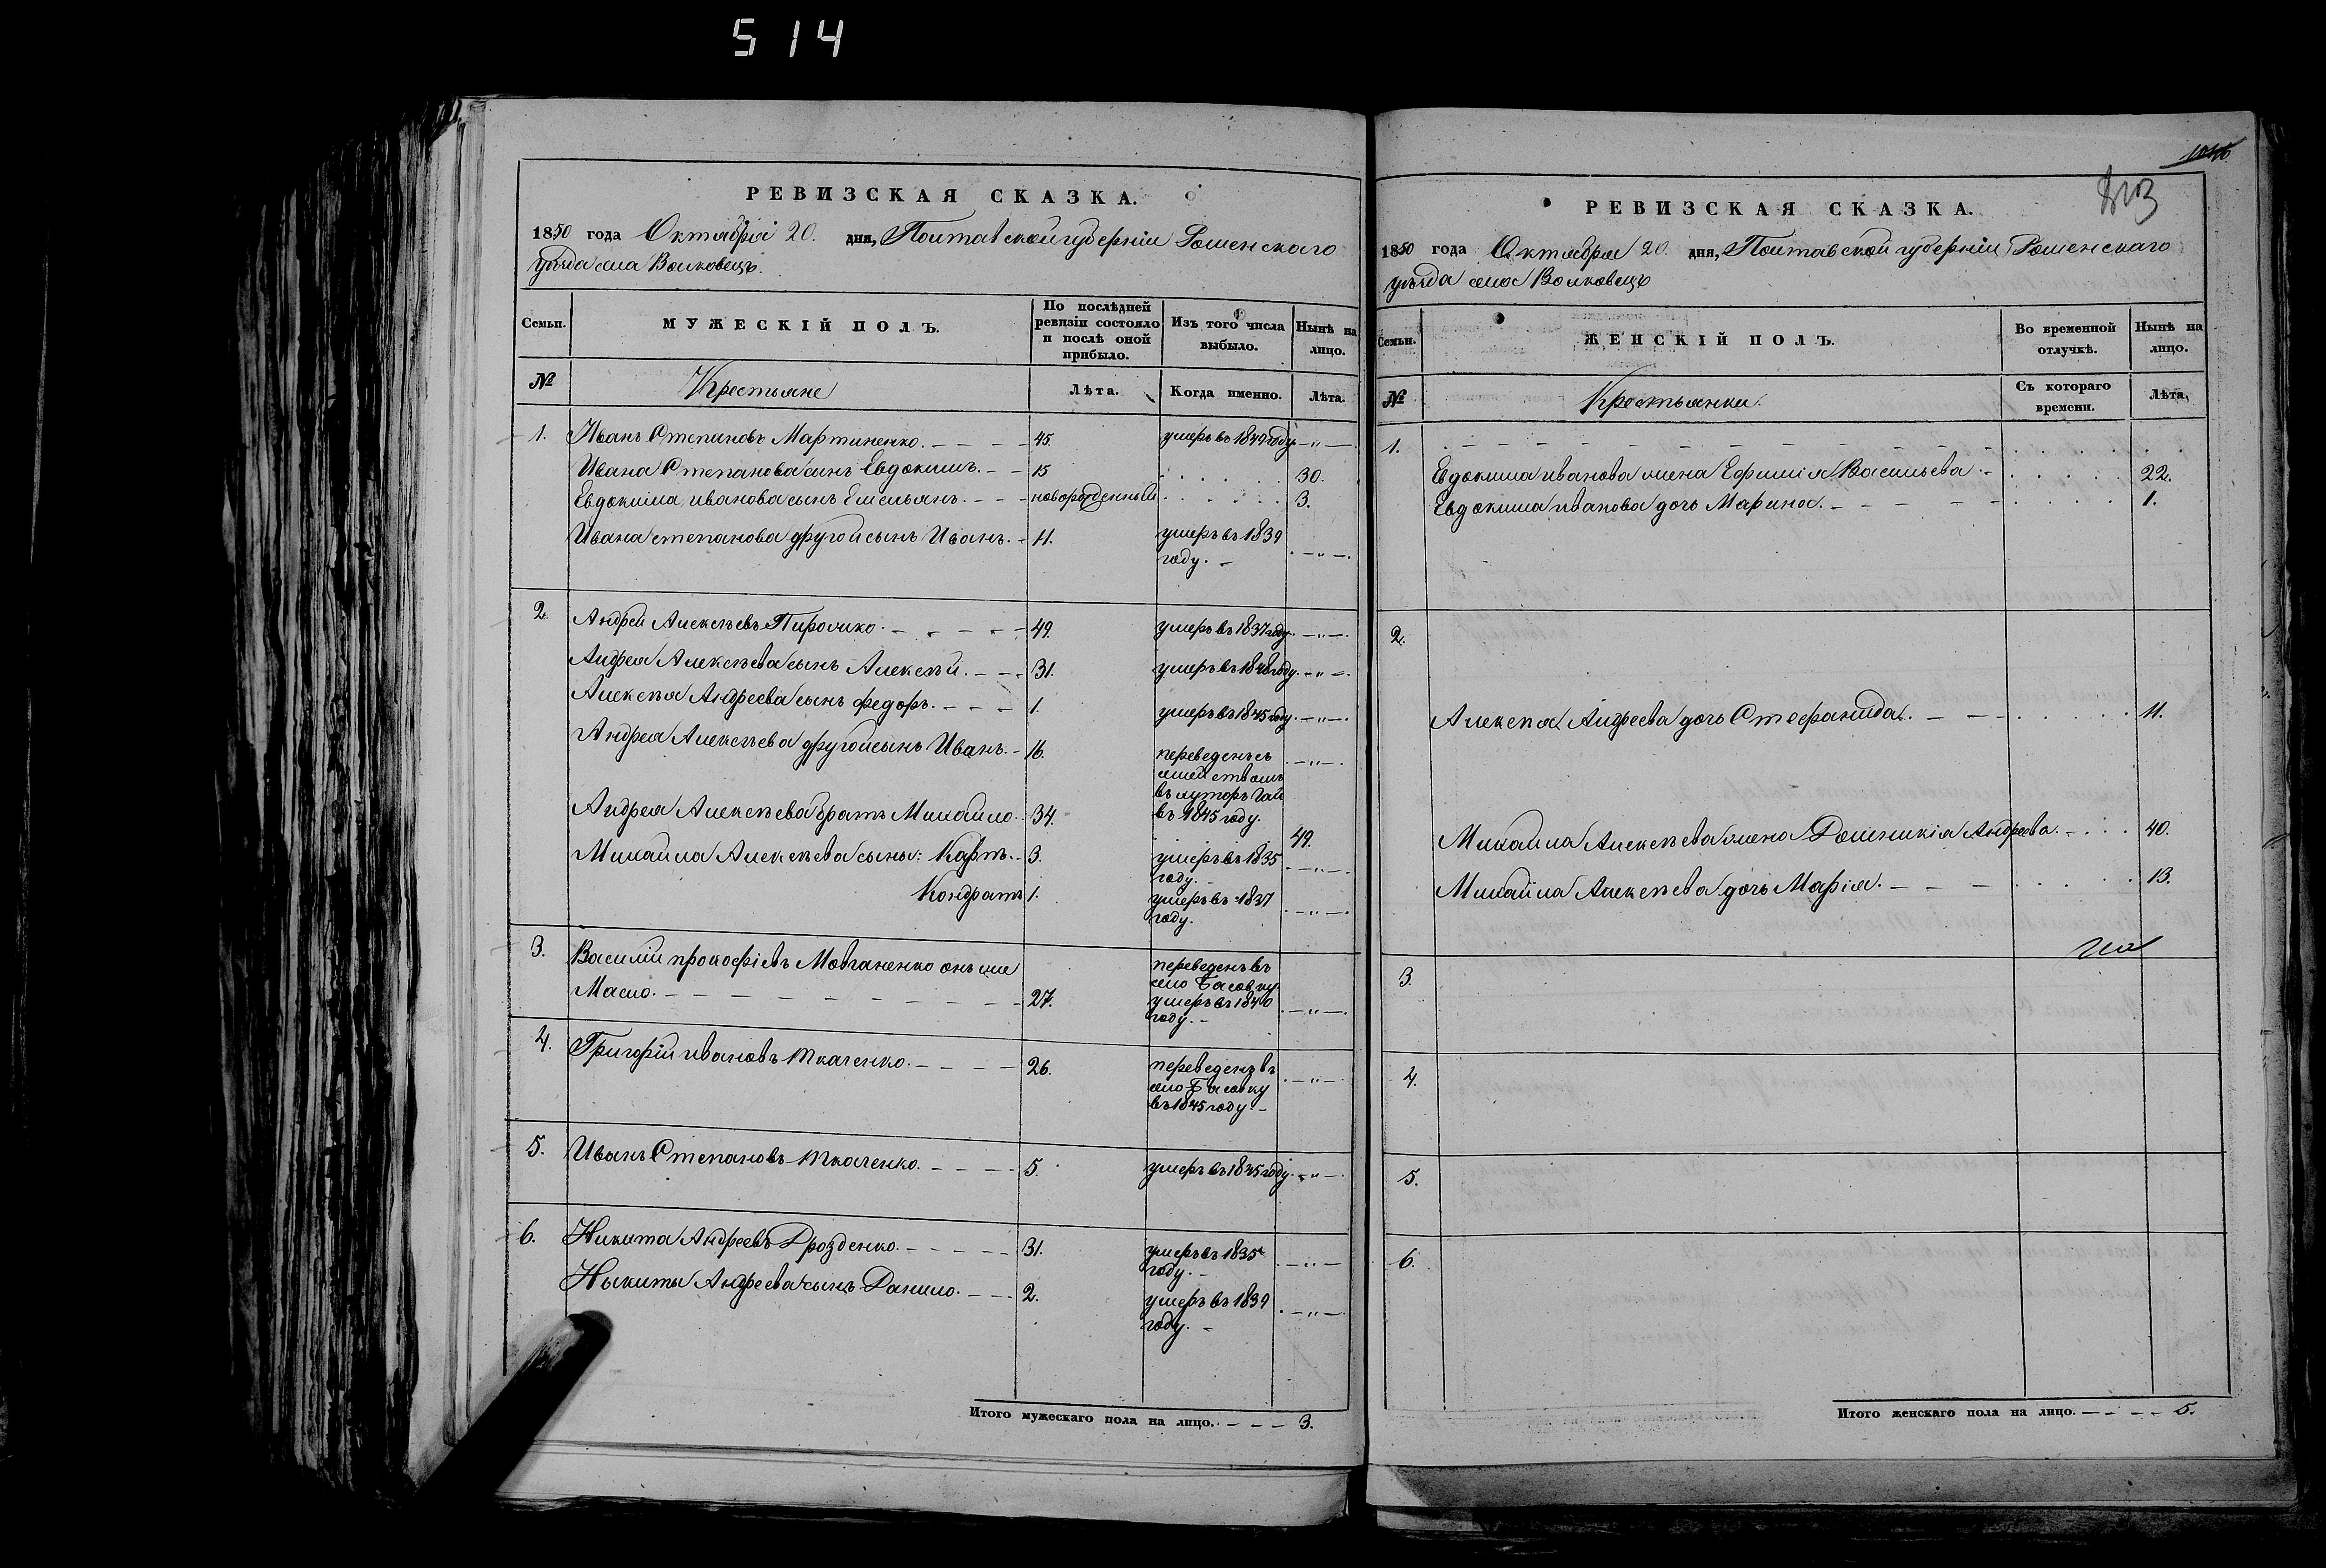 514
РЕВИЗСКАЯ СКАЗКА.
1850 года Октября 20. дня, Полтавской губерніи Роменскаго
уѣзда села Волковецъ.
Семьи.
МУЖЕСКІЙ ПОЛЪ.
По послѣдней
ревизіи состояло
и послѣ оной
прибыло.
Изъ того числа
выбыло.
Нынѣ на
лицо.
№
Крестьяне
Лѣта.
Когда именно.
Лѣта.
1. Иванъ Степановъ Мартиненко. 45. умеръ въ 1849 году.
Ивана Степанова сынъ Евдокимъ. 15 30.
Евдокима иванова сынъ Емельянъ. новорожденный 3.
Ивана степанова другой сынъ Иванъ. 11. умеръ въ 1839
году.
2. Андрей Алексѣевъ Пирожко. 49. умеръ въ 1837 году.
Андрея Алексѣева сынъ Алексѣй. 31. умеръ въ 1848 году.
Алексѣя Андреева сынъ Федоръ. 1. умеръ въ 1845 году.
Андрея Алексѣева другой сынъ Иванъ. 16. переведенъ съ
семействомъ
въ хуторъ Гай
въ 1845 году.
Андрея Алексѣева братъ Михайло. 34. 49.
Михайла Алексѣева сыны: Карпъ. 3. умеръ въ 1835
году.
Кондратъ 1. умеръ въ 1837
году.
3. Василій прокофіевъ Мовчаненко онъ же
Масло. 27. переведенъ въ
село Басовку
умеръ въ 1840
году.
4. Григорій ивановъ Ткаченко. 26. переведенъ въ
село Басовку
въ 1845 году.
5. Иванъ Степановъ Ткаченко. 5. умеръ въ 1845 году.
6. Никита Андреевъ Дрозденко. 31. умеръ въ 1835
году.
Никиты Андреева сынъ Данило. 2. умеръ въ 1839
году.
Итого мужескаго пола на лицо. 3.
РЕВИЗСКАЯ СКАЗКА.
1850 года Октября 20. дня, Полтавской губерніи Роменскаго
уѣзда села Волковецъ
Семьи.
ЖЕНСКІЙ ПОЛЪ.
Во временной
отлучкѣ.
Нынѣ на
лицо.
№
Крестьянки.
Съ котораго
времени.
Лѣта.
1.
Евдокима иванова жена Ефимія Васильева. 22.
Евдокима иванова дочь Марина. 1.
2.
Алексѣя Андреева дочь Стефанида. 11.
Михайла Алексѣева жена Домникія Андреева. 40.
Михайла Алексѣева дочь Марія. 13.
3.
4.
5.
6.
Итого женскаго пола на лицо. 5.